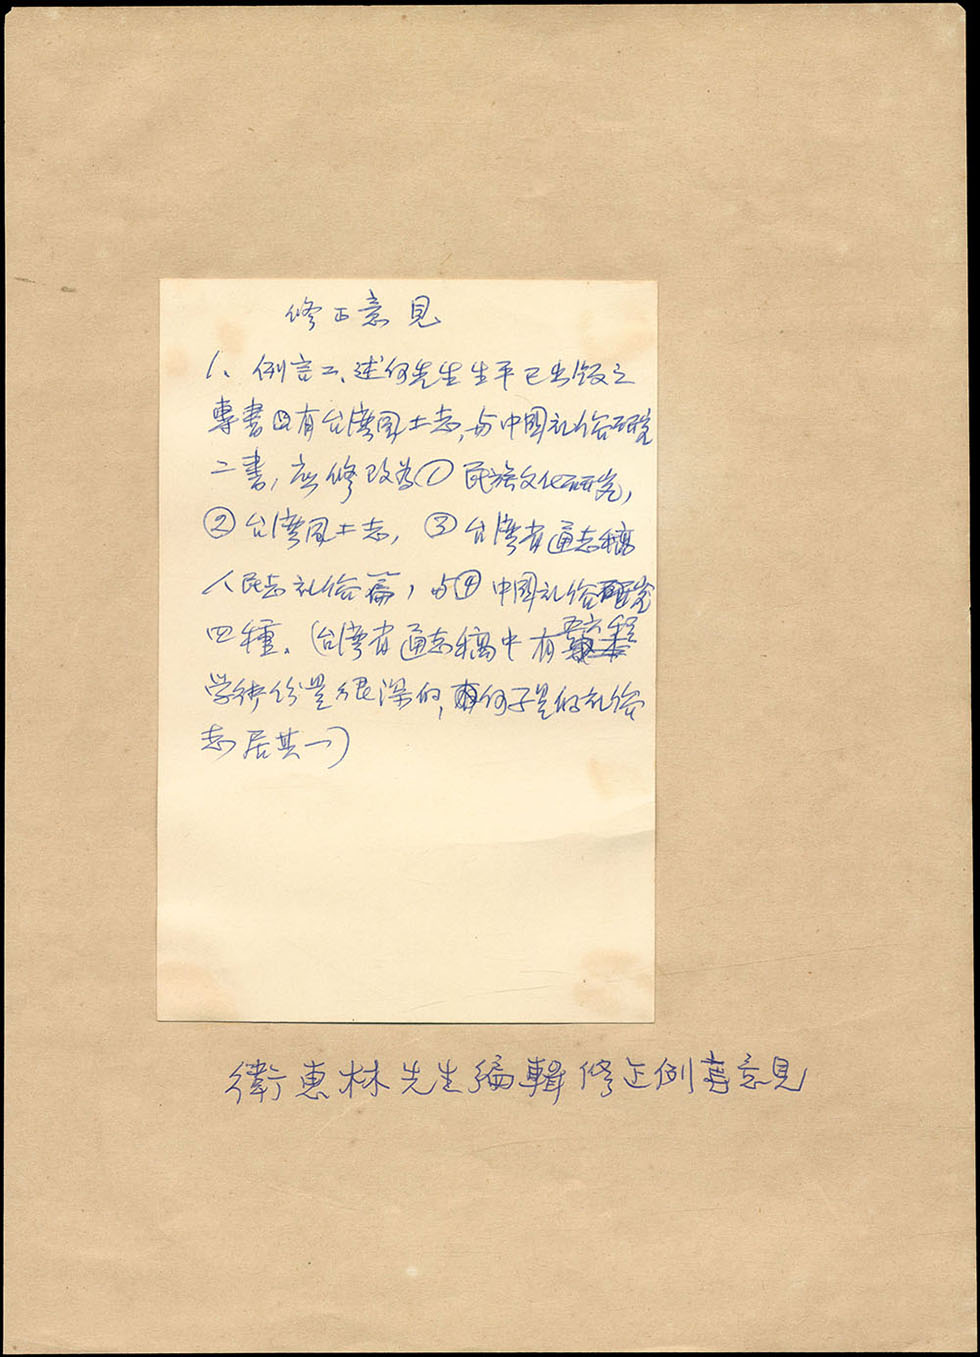 修正意見
1、例言二、述何先生生平已出版之
專書只有台灣風土志,与中國礼俗研究
二書,應修改為① 民族文化研究,
② 台灣風土志, ③ 台灣省通志稿
人民志礼俗篇,与④ 中國礼俗研究
四種。(台灣省通志稿中有五六程
学術份量很深的,何子是的礼俗
志居其一)
衛惠林先生編輯修正例言意見